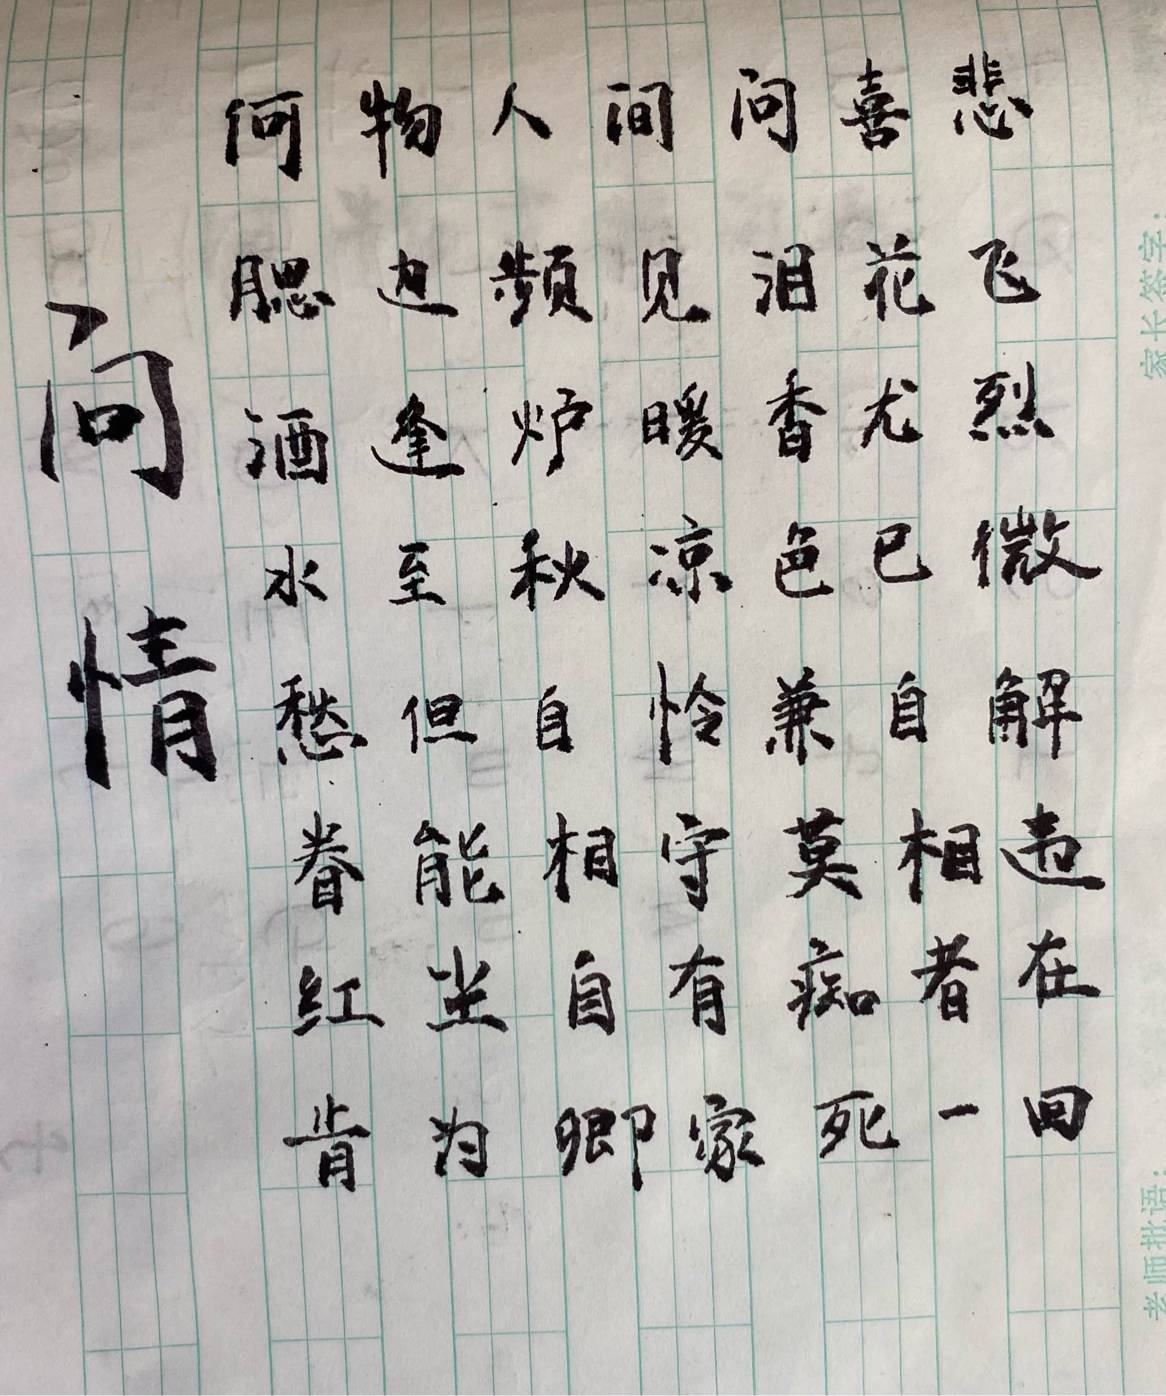 问情
何物人间问喜悲
腮边频见泪花飞
酒逢炉暖香尤烈
水至秋凉色已微
愁但自怜兼自解
眷能相守莫相违
红尘自有痴者在
肯为卿家死一回
家长签字：
老师批语：